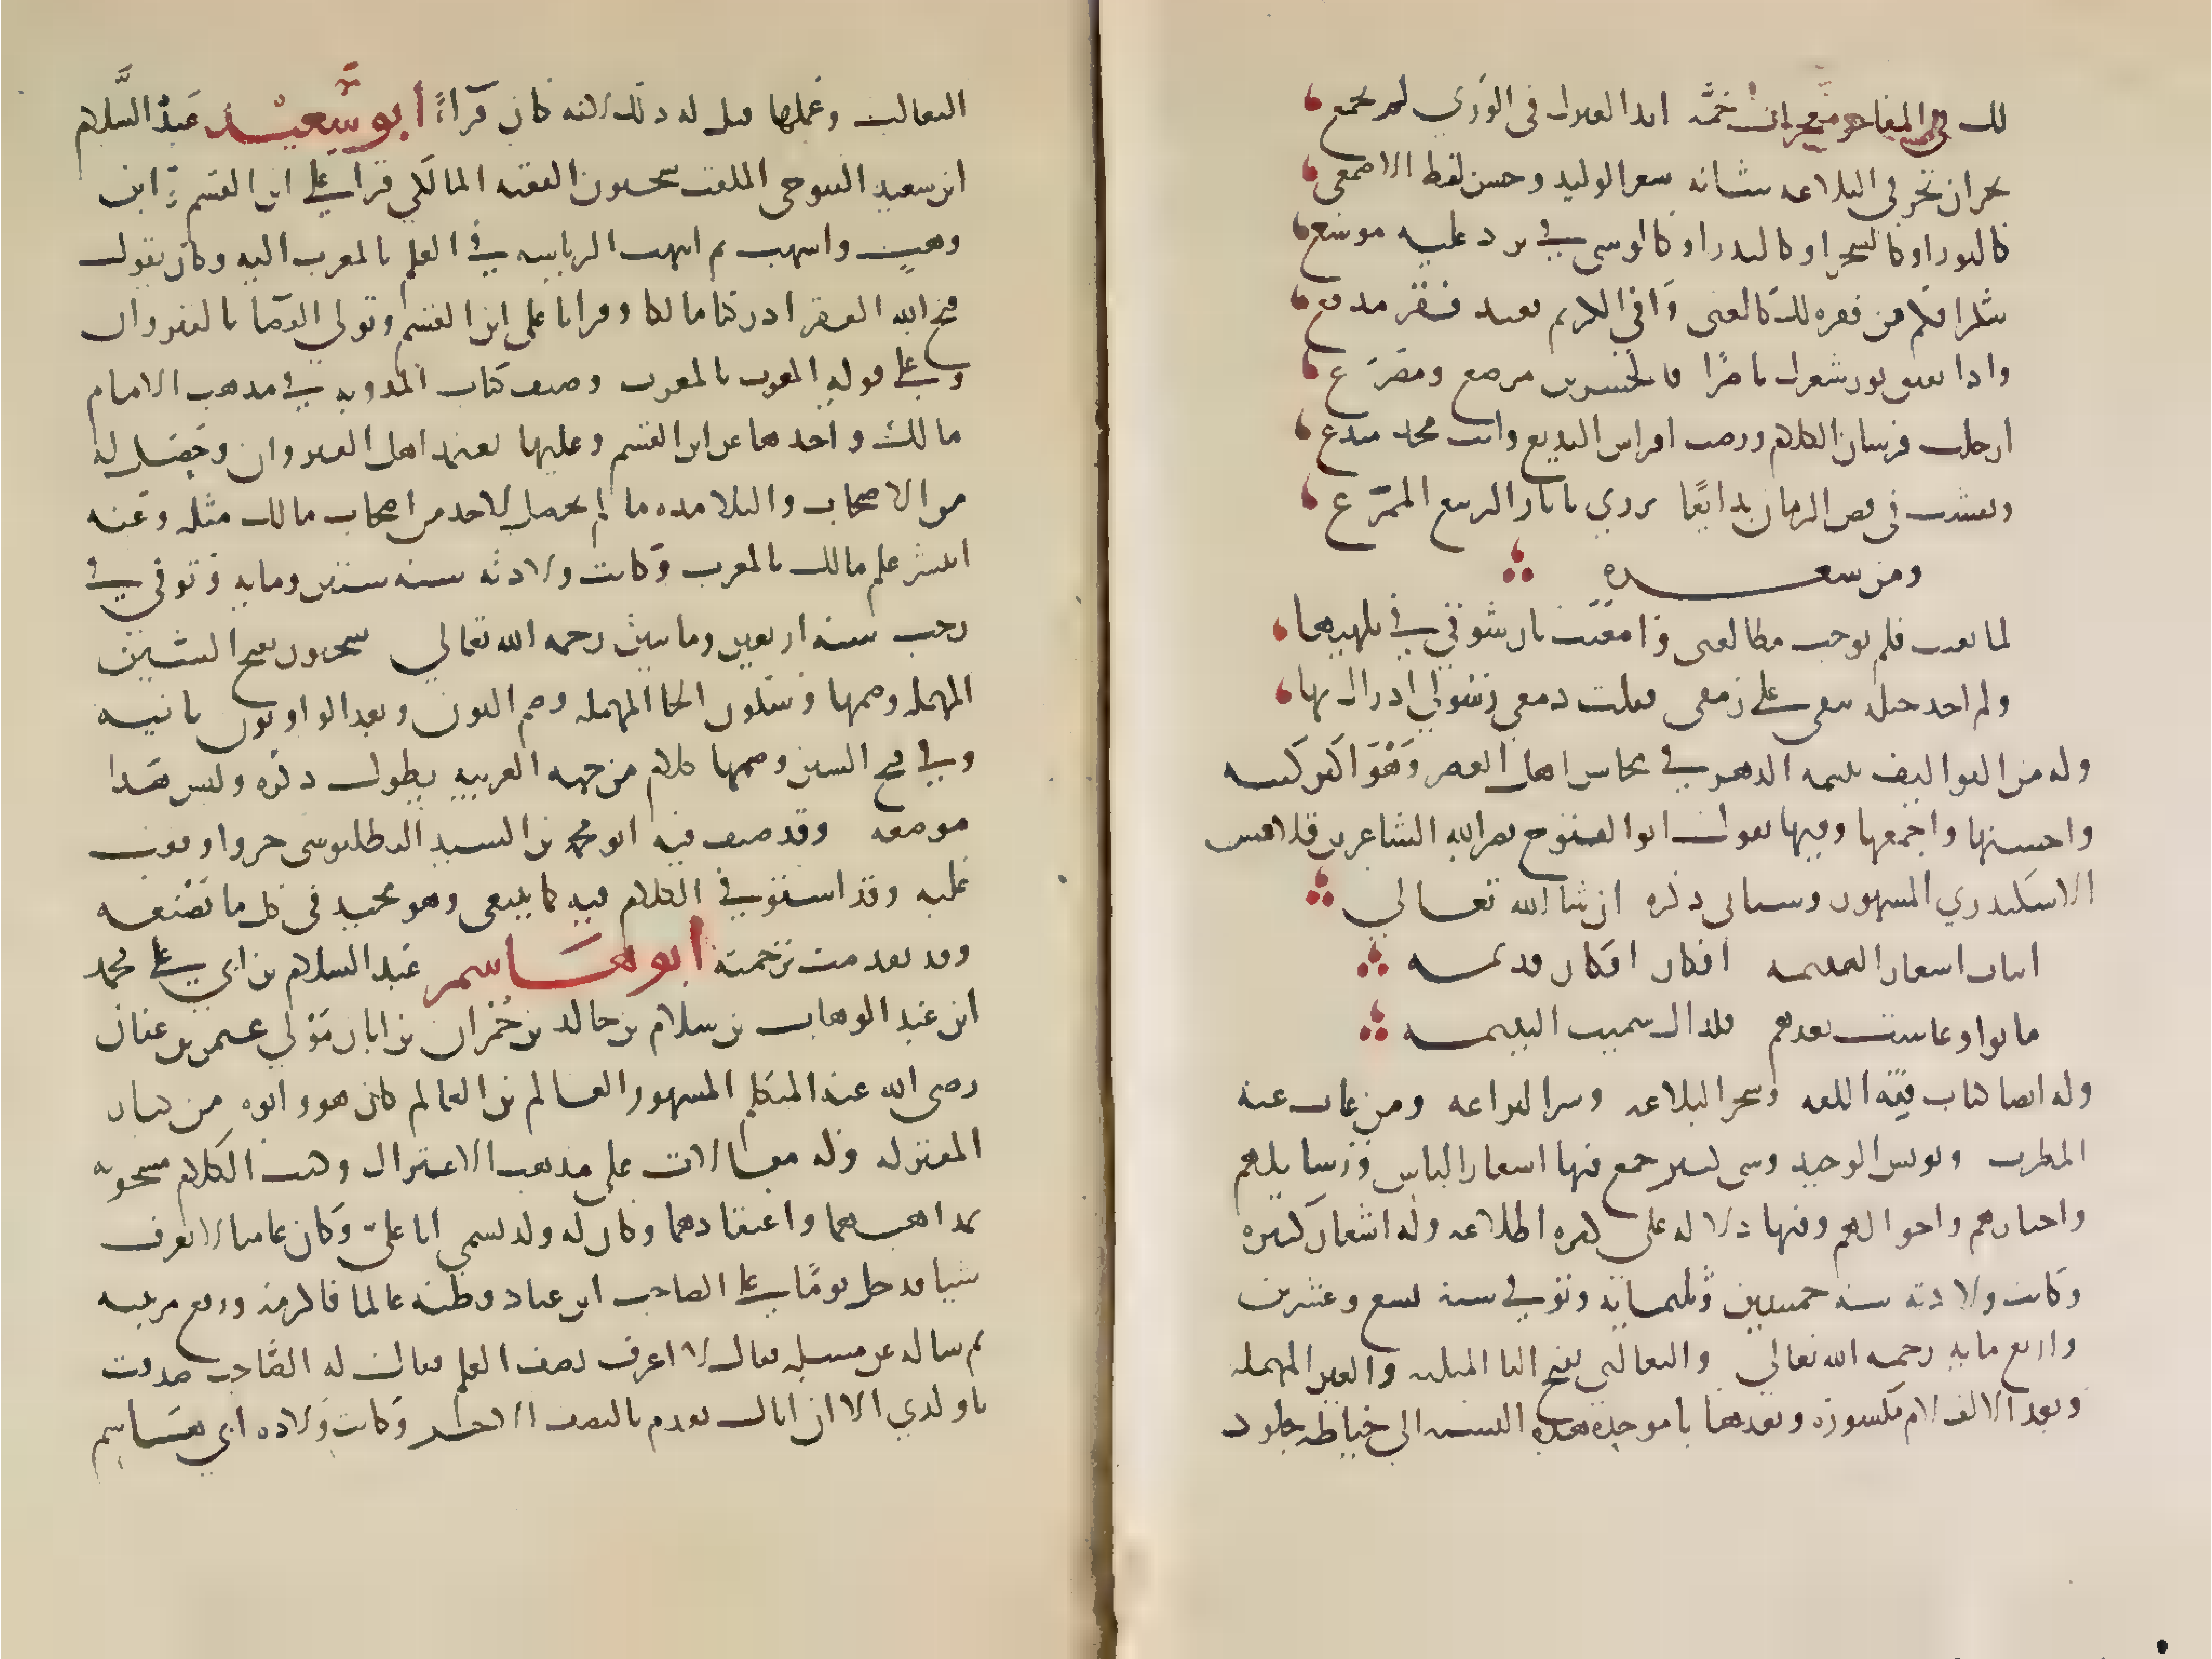 لك في المفاخر معجزات جمة ابدا لغيرك في الوري لم تجمع
بحران بحر في البلاغه شانه شعر الوليد وحسن لفظ الاصمعي
كالنور او كالسحر او كالبدر او كالوشي في برد عليه موشع
شكرا فكم من فقره لك كالغنى وافي الكريم بعيد فقر مدقع
واذا تفتق نور شعرك ناضرا فالحسن بين مرصع ومصرع
ارجلت فرسان الكلام ورضت افراس البديع وانت امجد مبدع
ونقشت في فص الزمان بدايعا تزري باثار الربيع الممرع
ومن شعره
لما بعثت فلم توجب مطالعتي وامعنت نار شوقي في تلهبها
ولم اجد حيلة تبقي على رمقي قبلت دمعي رسولي اذ رال بها
وله من التواليف يتيمه الدهر في محاسن اهل العصر وهو اكبر كتبه
واحسنها واجمعها وفيها يقول ابو الفتوح نصر الله الشاعر بن قلاقس
الاسكندري المشهور وسياتي ذكره ان شا الله تعالي
ابيات اشعار اليتيمه ابكار افكار قديمه
ماتوا وعاشت بعدهم فلذاك سميت اليتيمه
وله ايضا كتاب فقه اللغه وسحر البلاغه وسر البراعه ومن غاب عنه
المطرب ومونس الوحيد وشي كثير جمع فيها اشعار الناس ورسايلهم
واخبارهم واحوالهم وفيها دلاله على كثره اطلاعه وله اشعار كثيره
وكانت ولادته سنه خمسين وثلثمايه وتوفي سنه تسع وعشرين
واربع مايه رحمه الله تعالي والثعالبي بفتح الثا المثلثه والعين المهمله
وبعد الالف لام مكسوره وبعدها با موحده هذه النسبه الى خياطه جلود
الثعالب وعملها قيل له ذلك لانه كان فرآءً ابو سعيد عبد السلام
ابن سعيد التنوخي الملقب سحنون الفقيه المالكي قرا على ابن القسم وابن
وهب واشهب ثم انتهت الرياسه في العلم بالمغرب اليه وكان يقول
قبح الله الفقر ادركنا مالكا وقرانا على ابن القسم وتولي القضا بالقيروان
وعلى قوله المعول بالمغرب وصنف كتاب المدونه في مذهب الامام
مالك واخذها عن ابن القسم وعليها يعتمد اهل القيروان وحصل له
من الاصحاب والتلامذه ما لم يحصل لاحد من اصحاب مالك مثله وعنه
انتشر علم مالك بالمغرب وكانت ولادته سنه ستين ومايه وتوفي في
رجب سنه اربعين ومايتين رحمه الله تعالي سحنون بفتح السين
المهمله وضمها وسكون الحا المهمله وضم النون وبعد الواو نون ثانيه
وفي فتح السين وضمها كلام من جهه العربيه يطول ذكره وليس هذا
موضعه وقد صنف فيه ابو محمد بن السيد البطليوسي جزوا وقفت
عليه وقد استوفي الكلام فيه كما ينبغي وهو مجيد في كل ما تصنعه
وقد تقدمت ترجمته ابو هاشم عبد السلام بن ابي علي محمد
ابن عبد الوهاب بن سلام بن خالد بن حمران بن ابان مولي عثمن بن عفان
رضي الله عنه المتكلم المشهور العالم بن العالم كان هو وابوه من كبار
المعتزله وله مقالات على مذهب الاعتزال وكتب الكلام مشحونه
بمذاهبهما واعتقادهما وكان له ولد يسمي ابا علي وكان عاميا لا يعرف
شيا فدخل يومًا على الصاحب ابن عباد فظنه عالما فاكرمه ورفع مرتبته
ثم ساله عن مسله فقال لا اعرف نصف العلم فقال له الصاحب صدقت
يا ولدي الا ان اباك تقدم بالنصف الاخر وكانت ولاده ابي هاشم